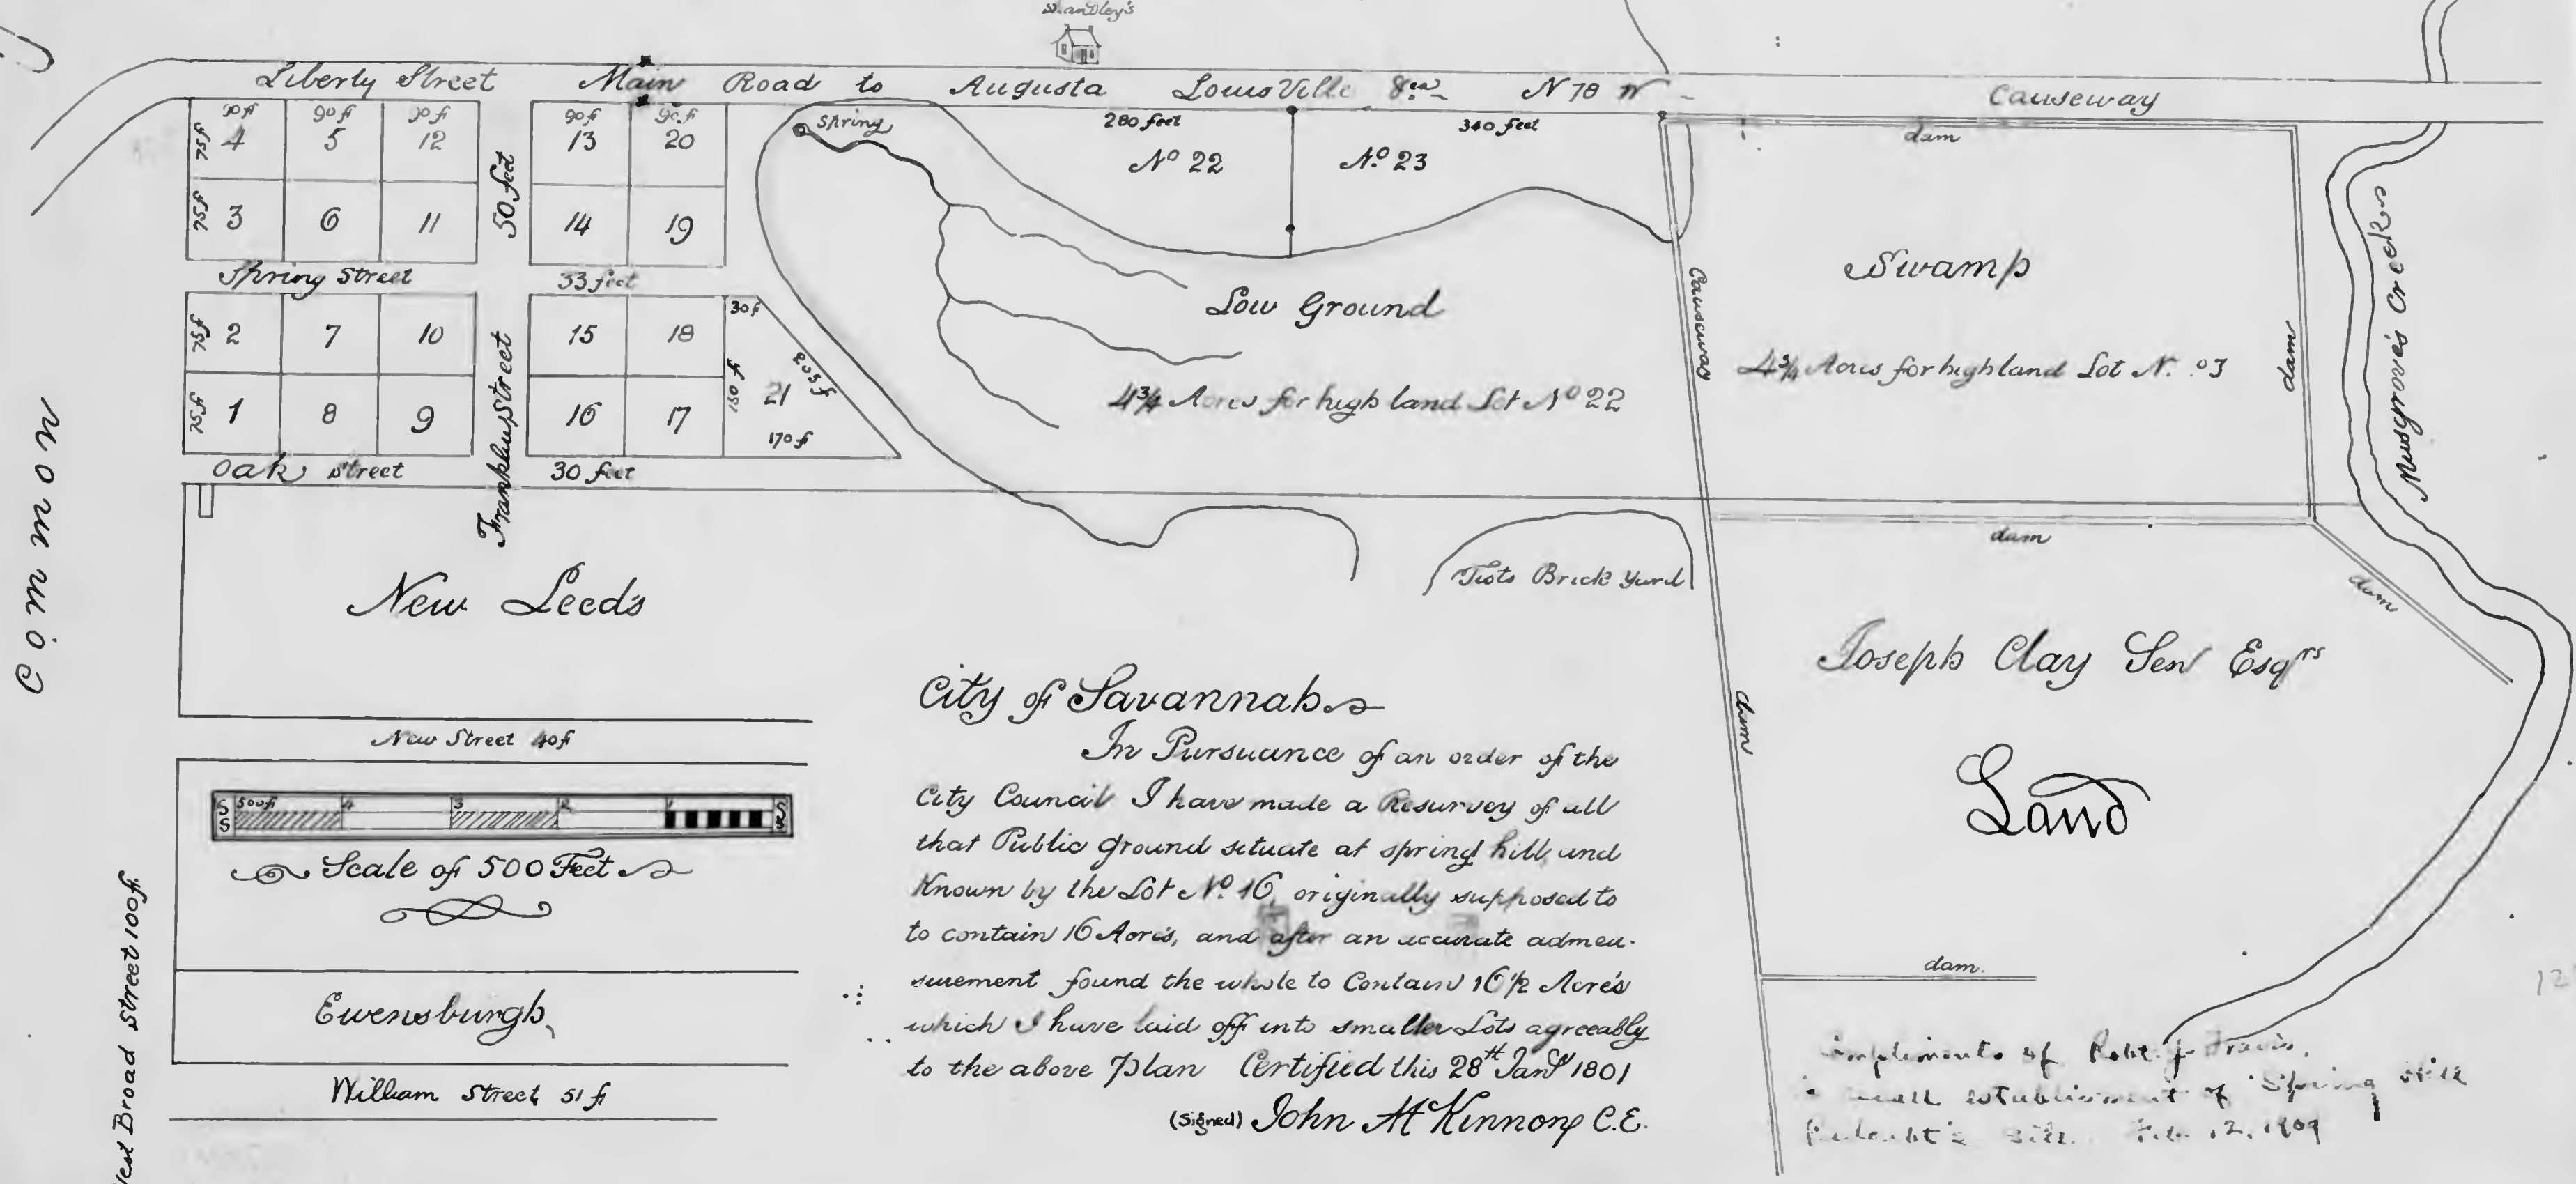 Liberty Street Main Road to Augusta Louisville N 78 W
Causeway
90 f 90 f 90 f 90 f 90 f
75 f 4 5 12 13 20
75 f 3 6 11 14 19
50 feet
Spring Street 33 feet
75 f 2 7 10 15 18
75 f 1 8 9 16 17
30 f
150 f
205 f
21
170 f
Franklin Street
Oak Street 30 feet
Spring
280 feet
No 22
340 feet
No. 23
Low Ground
4¾ Acres for high land Lot No 22
Causeway
dam
Swamp
4¾ Acres for high land Lot N.
dam
Musgrove's Creek
dam
dam
Common
New Leeds
Brick Yard
Joseph Clay Sen Esqrs
Land
dam
dam.
New Street 40 f
500 f 4 3 2 1
Scale of 500 Feet
Ewensburgh
William Street 51 f
Broad Street 100 f.
City of Savannah
In Pursuance of an order of the
City Council I have made a Resurvey of all
that Public ground situate at spring hill, and
Known by the Lot No. 16, originally supposed to
to contain 16 Acres, and after an accurate admea-
surement found the whole to Contain 16 1/2 Acres
which I have laid off into smaller Lots agreeably
to the above Plan Certified this 28th Jany 1801
(Signed) John McKinnon C.E.
of
establishment of Spring Hill
Feb. 12, 1909